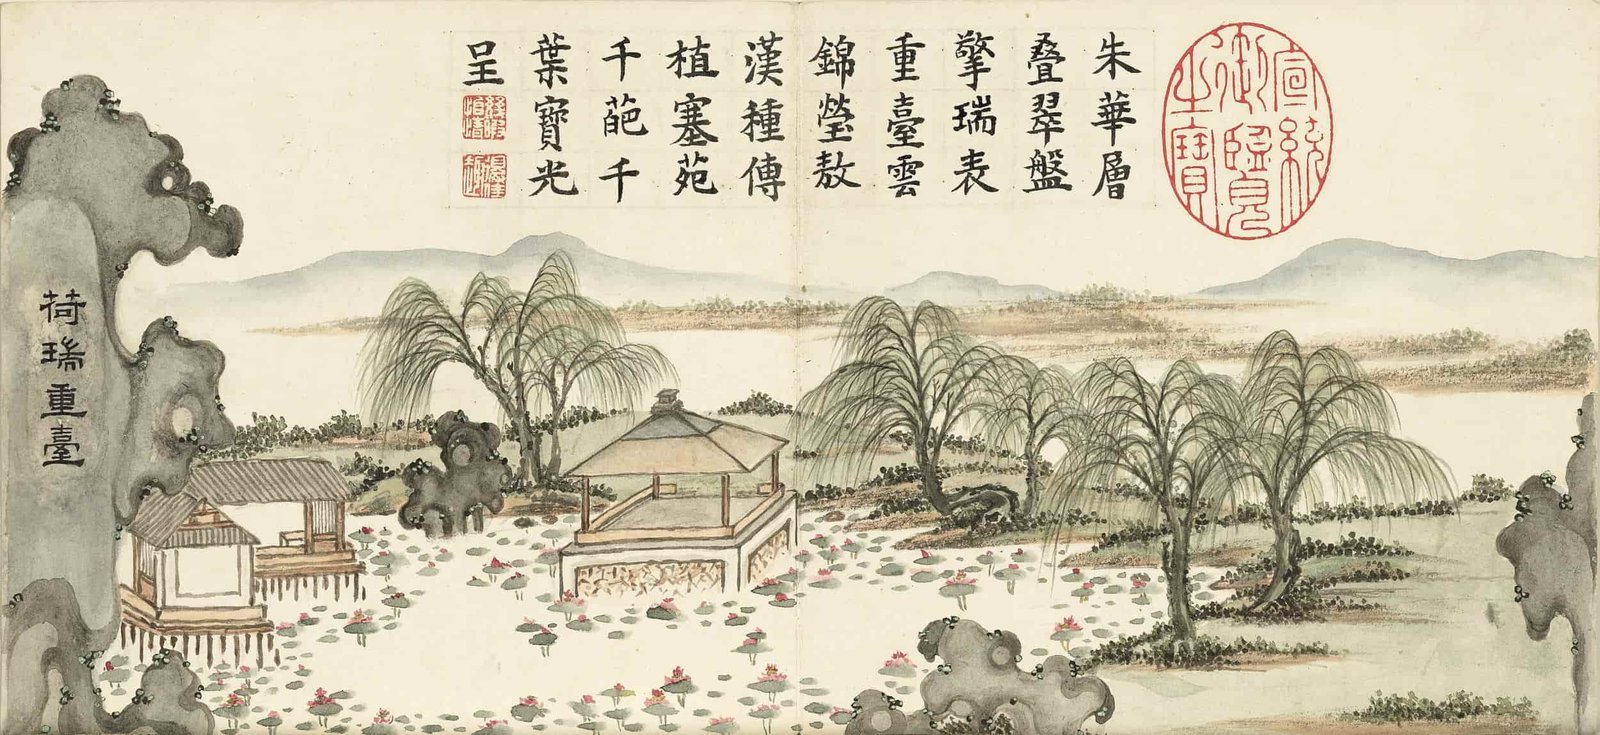 宣統
御覽
之寶
朱華層
疊翠盤
擎瑞表
重臺雲
錦瑩敖
漢種傳
植塞苑
千葩千
葉寶光
呈
荷瑞重臺